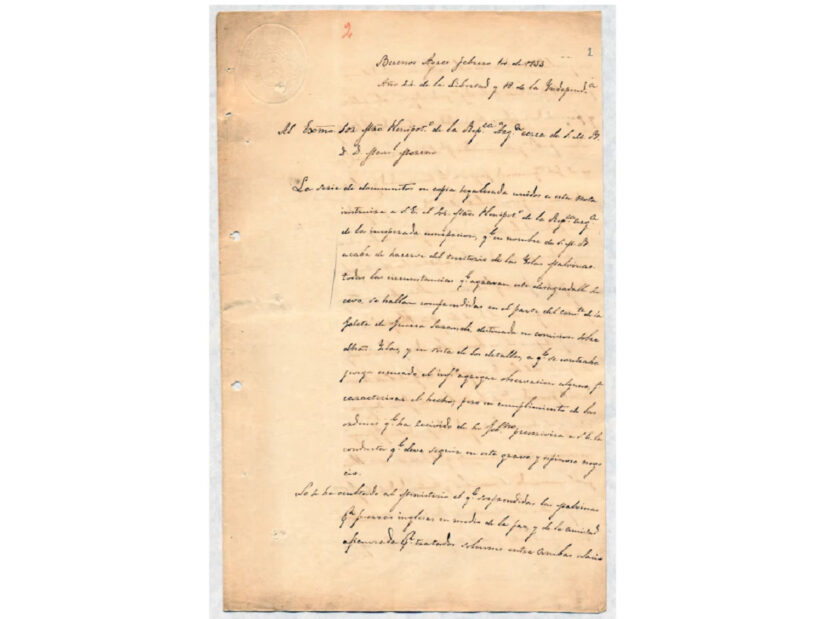 2
1
Buenos Ayres febrero 14 de 1833
Año 24 de la Libertad y 18 de la Independ.a
Al Exmo Sor Mño Plenipot.o de la Rep.ca Arg.a cerca de S. M. B.
D. D. Man.l Moreno
La serie de documentos en copia legalizada unidos a esta nota
instruira a S. E. el Sor Mño Plenipot.o de la Rep.ca Arg.a
de la inesperada usurpacion, q.e en nombre de S. M. B.
acaba de hacerse del territorio de las Yslas Malvinas.
todas las circunstancias q.e agravan este desagradable su
ceso, se hallan comprendidas en el parte del com.te de la
Goleta de Guerra Sarandi, destinada en comision sobre
Yslas, y en vista de los detalles, a q.e se contrahe
juzga escusado el inf.o agregar observacion alguna, p.a
caracterizar el hecho; pero en cumplimiento de las
ordenes q.e ha recibido de su Gob.no prescrivira a S. E. la
conducta q.e deve seguir en este grave y espinoso nego
cio.
Se ha ocultado al Ministerio el q.e las Malvinas
p.r fuerzas inglesas en medio de la paz, y de la amistad
afianzada p.r tratados solemnes entre ambas